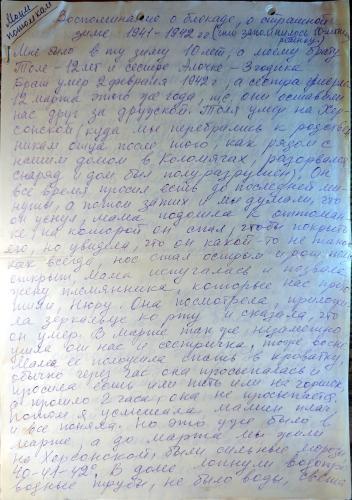 Моим
потомкам
Воспоминание о блокаде, о страшной
зиме 1941-1942го (что запомнилось
Мне было в ту зиму 10 лет, а моему брату
Толе - 12 лет и сестре Элочке - 3 годика.
Брат умер 2 февраля 1942 г, а сестра умерла
12 марта этого же года, т.е. они оставили
нас друг за дружкой. Толя умер на Хер-
сонской (куда мы перебрались к родствен-
никам отца после того, как рядом с
нашим домом в Коломягах, разорвался
снаряд и дом был полуразрушен). Он
всё время просил есть до последней ми-
нуты, а потом затих и мы думали, что
он уснул, мама подошла к оттоман-
ке, на которой он спал, чтобы покрыть
его, но увидела, что он какой-то не такой
как всегда, нос стал острым и рот
открыт. Мама испугалась и позвала
жену племянника, которые нас при-
ютили, Нюру. Она посмотрела, приложи-
ла зеркальце ко рту и сказала, что
он умер. В марте так же, незаметно
ушла от нас и сестричка, тоже
Мама её положила спать в кроватку,
обычно через час она просыпалась и
просила есть или пить или на горшок,
а прошло 2 часа, она не просыпается,
потом я услышала мамин плач,
и всё поняла. Но это уже было в
марте, а до марта мы жили
на Херсонской, были сильные морозы
40-41-42°. В доме лопнули водопро-
водные трубы, не было воды, света